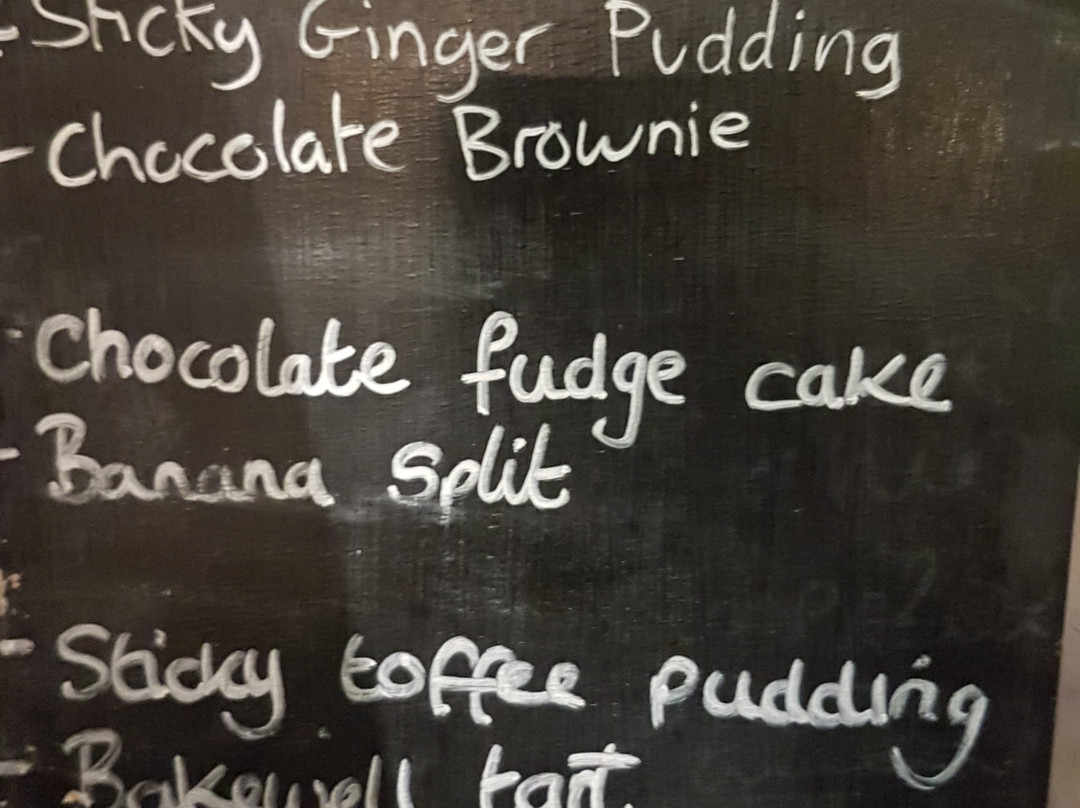 - Sticky Ginger Pudding
- Chocolate Brownie
- Chocolate fudge cake
- Banana Split
- Sticky toffee pudding
- Bakewell tart